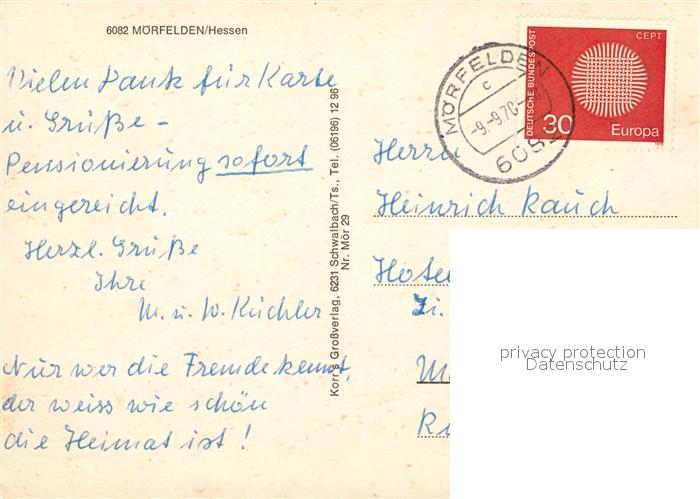 6082 MÖRFELDEN/Hessen
Vielen Dank für Karte
u. Grüße –
Pensionierung sofort
eingereicht.
Herzl. Grüße
Ihre
M. u. W. Küchler
Nur wer die Fremde kennt,
der weiss wie schön
die Heimat ist!
Korr's Großverlag, 6231 Schwalbach/Ts., Tel. (06196) 12 96
Nr. Mör 29
MÖRFELDEN
c
-9.-9.70-
6082
DEUTSCHE BUNDESPOST
CEPT
30
Europa
Herrn
Heinrich Rauch
Hote
Zi.
privacy protection
Datenschutz